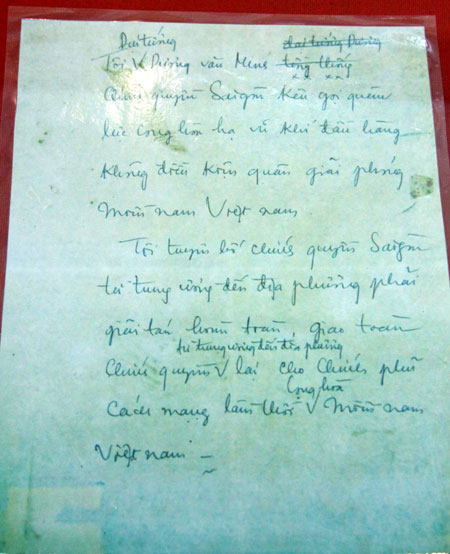 Đại tướng đại tướng Dương
Tôi V Dương văn Minh tổng thống
chính quyền Saigòn kêu gọi quân
lực cộng hòa hạ vũ khí đầu hàng
không điều kiện quân giải phóng
miền nam Việt nam
Tôi tuyên bố chính quyền Saigòn
từ trung ương đến địa phương phải
giải tán hoàn toàn, giao toàn
từ trung ương đến địa phương
chính quyền V lại cho chính phủ
Cộng hoà
cách mạng lâm thời V miền nam
Việt nam